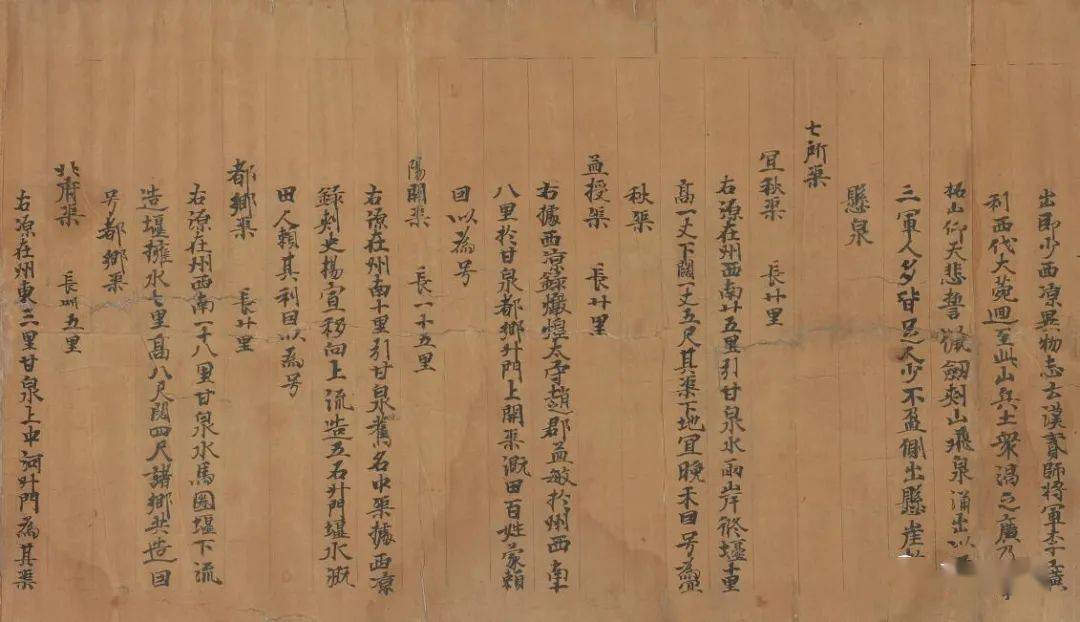 出即少西涼異物志云漢貳師將軍李廣
利西伐大菀迴至此山兵士衆渴乏廣乃
拓山仰天悲誓 劒刺山飛泉涌出以
三軍人多皆足人少不盈側出懸崖
懸泉
七所渠
宜秋渠 長廿里
右源在州西南廿五里引甘泉水兩岸修堰十里
高一丈下闊一丈五尺其渠下地宜晚禾因号爲宜
秋渠
孟授渠 長廿里
右據西涼録燉煌太守趙郡孟敏於州西南
八里於甘泉都鄉斗門上開渠溉田百姓蒙賴
因以爲号
陽開渠 長一十五里
右源在州南十里引甘泉舊名中渠據西涼
録刺史楊宣移向上流造五石斗門堰水溉
田人賴其利因以為号
都鄉渠 長廿里
右源在州西南一十八里甘泉水馬圈堰下流
造堰擁水七里高八尺闊四尺諸鄉共造因
号都鄉渠
北府渠 長卌五里
右源在州東三里甘泉上中河斗門為其渠